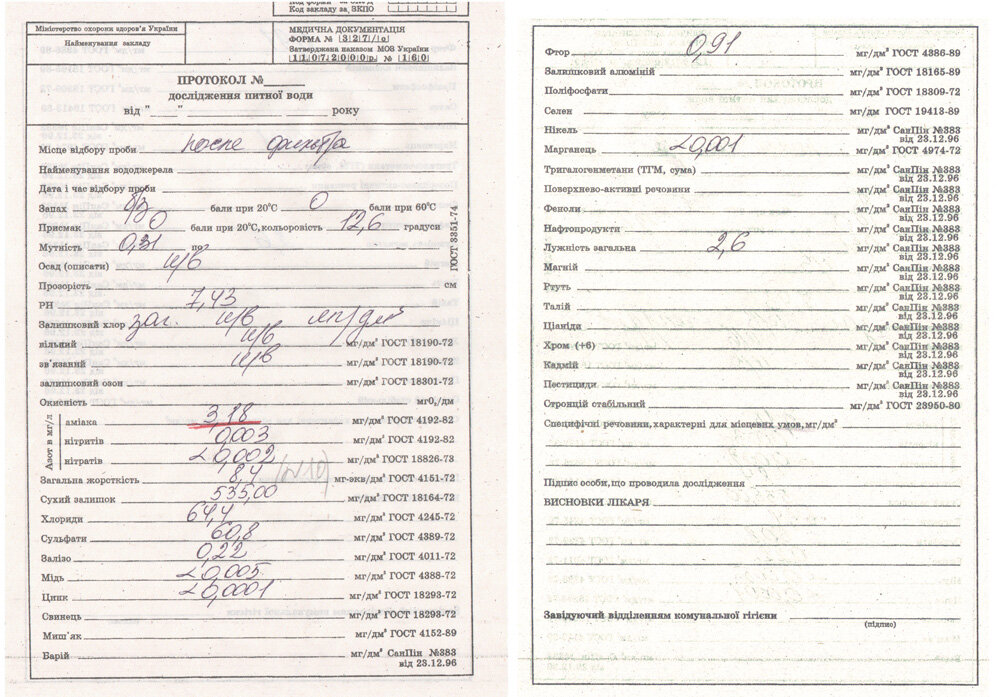 Код закладу за ЗКПО
Міністерство охорони здоров'я України
Найменування закладу
МЕДИЧНА ДОКУМЕНТАЦІЯ
ФОРМА № 327/о
Затверджена наказом МОЗ України
11072000р. № 160
ПРОТОКОЛ №
дослідження питної води
від " " року
Місце відбору проби после фильтра
Найменування вододжерела
Дата і час відбору проби
Запах б/з бали при 20°С 0 бали при 60°С
Присмак 0 бали при 20°С, кольоровість 12,6 градуси
Мутність 0,31 по
Осад (описати) н/в
ГОСТ 3351-74
Прозорість см
РН 7,43
Залишковий хлор заг. н/в мг/дм³
вільний н/в мг/дм³ ГОСТ 18190-72
зв'язаний н/в мг/дм³ ГОСТ 18190-72
залишковий озон мг/дм³ ГОСТ 18301-72
Окисність мгО₂/дм
Азот в мг/л
аміака 3,18 мг/дм³ ГОСТ 4192-82
нітритів 0,003 мг/дм³ ГОСТ 4192-82
нітратів <0,002 мг/дм³ ГОСТ 18826-73
Загальна жорсткість 8,4 мг-экв/дм ГОСТ 4151-72
Сухий залишок 535,00 мг/дм³ ГОСТ 18164-72
Хлориди 64,4 мг/дм³ ГОСТ 4245-72
Сульфати 60,8 мг/дм³ ГОСТ 4389-72
Залізо 0,22 мг/дм³ ГОСТ 4011-72
Мідь <0,005 мг/дм³ ГОСТ 4388-72
Цинк <0,0001 мг/дм³ ГОСТ 18293-72
Свинець мг/дм³ ГОСТ 18293-72
Миш'як мг/дм³ ГОСТ 4152-89
Барій мг/дм³ СанПін №383
від 23.12.96
Фтор 0,91 мг/дм³ ГОСТ 4386-89
Залишковий алюміній мг/дм³ ГОСТ 18165-89
Поліфосфати мг/дм³ ГОСТ 18309-72
Селен мг/дм³ ГОСТ 19413-89
Нікель мг/дм³ СанПін №383
від 23.12.96
Марганець <0,001 мг/дм³ ГОСТ 4974-72
Тригалогенметани (ТГМ, сума) мг/дм³ СанПін №383
від 23.12.96
Поверхнево-активні речовини мг/дм³ СанПін №383
від 23.12.96
Феноли мг/дм³ СанПін №383
від 23.12.96
Нафтопродукти мг/дм³ СанПін №383
від 23.12.96
Лужність загальна 2,6 мг/дм³ СанПін №383
від 23.12.96
Магній мг/дм³ СанПін №383
від 23.12.96
Ртуть мг/дм³ СанПін №383
від 23.12.96
Талій мг/дм³ СанПін №383
від 23.12.96
Ціаніди мг/дм³ СанПін №383
від 23.12.96
Хром (+6) мг/дм³ СанПін №383
від 23.12.96
Кадмій мг/дм³ СанПін №383
від 23.12.96
Пестициди мг/дм³ СанПін №383
від 23.12.96
Стронцій стабільний мг/дм³ ГОСТ 23950-80
Специфічні речовини, характерні для місцевих умов, мг/дм³
Підпис особи, що проводила дослідження
ВИСНОВКИ ЛІКАРЯ
Завідуючий відділенням комунальної гігієни
(підпис)